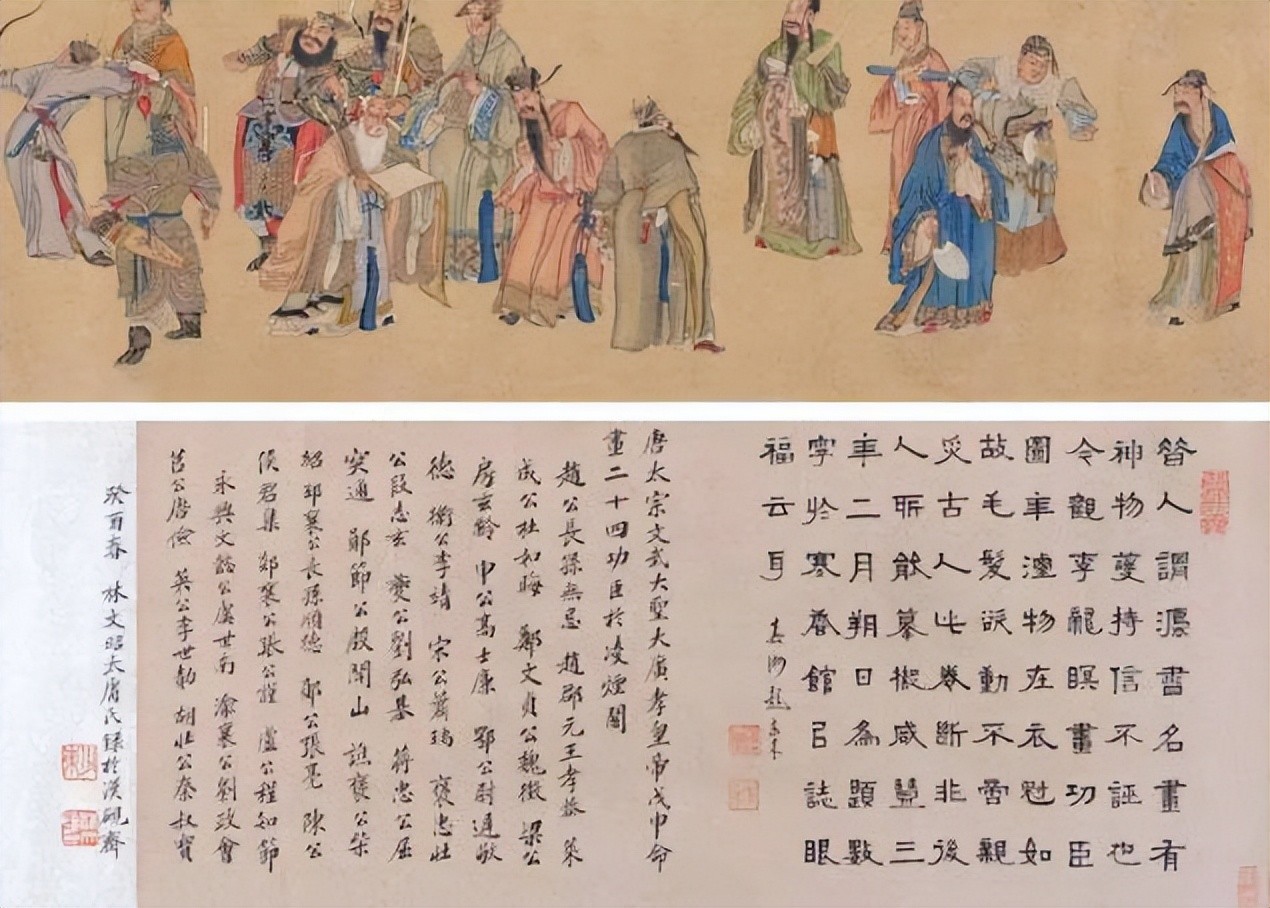 昔人謂灋書名畫有
神物護持信不誣也
今觀李龍瞑畫功臣
圖年湮物在衣冠如
故毛髮欲動不啻親
炙古人此卷斷非後
人所能摹擬咸豐三
年二月朔日為題數
字於寒香館㠯誌眼
福云耳
唐太宗文武大聖大廣孝皇帝戊申命
畫二十四功臣於凌煙閣
趙公長孫無忌 趙郡元王孝恭 萊
成公杜如晦 鄭文貞公魏徵 梁公
房玄齡 申公高士廉 鄂公尉遲敬
德 衛公李靖 宋公蕭瑀 褒忠壯
公段志玄 夔公劉弘基 蔣忠公屈
突通 鄖節公殷開山 譙襄公柴
紹 邳襄公長孫順德 鄖公張亮 陳公
侯君集 郯襄公張公謹 盧公程知節
永興文懿公虞世南 渝襄公劉政會
莒公唐儉 英公李世勣 胡壯公秦叔寶
癸酉春 林文昭太庸氏錄於漢硯齋